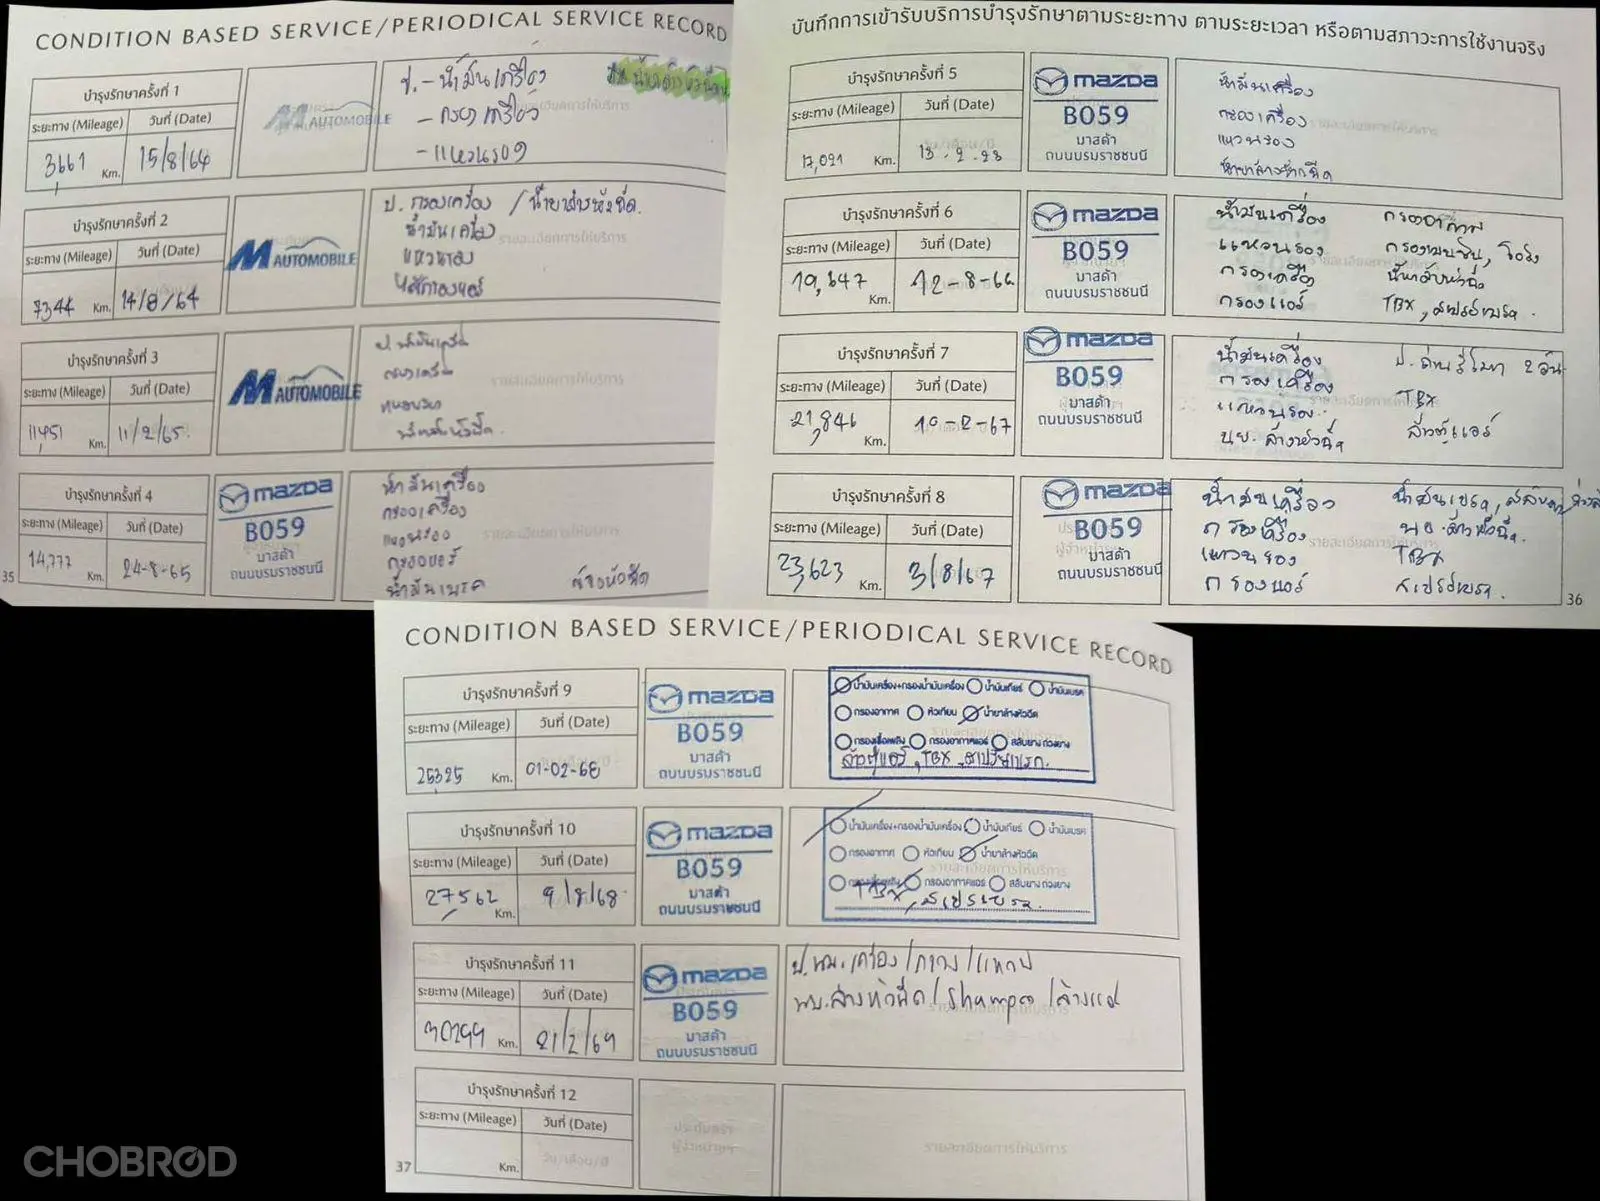 CONDITION BASED SERVICE/PERIODICAL SERVICE RECORD
บำรุงรักษาครั้งที่ 1
ระยะทาง (Mileage) วันที่ (Date)
3,661 Km. 15/8/64
M AUTOMOBILE
ป. - น้ำมันเครื่อง
- กรองเครื่อง
- แหวนรอง
บำรุงรักษาครั้งที่ 2
ระยะทาง (Mileage) วันที่ (Date)
7344 Km. 14/8/64
M AUTOMOBILE
ป. กรองเครื่อง / น้ำยาล้างหัวฉีด
น้ำมันเครื่อง
แหวนรอง
ไส้กรองแอร์
บำรุงรักษาครั้งที่ 3
ระยะทาง (Mileage) วันที่ (Date)
11,451 Km. 11/2/65
M AUTOMOBILE
ป. น้ำมันเครื่อง
กรองเครื่อง
แหวนรอง
บำรุงรักษาครั้งที่ 4
ระยะทาง (Mileage) วันที่ (Date)
14,777 Km. 24-8-65
mazda
B059
มาสด้า
ถนนบรมราชชนนี
น้ำมันเครื่อง
กรองเครื่อง
แหวนรอง
กรองแอร์
น้ำมันเบรค ล้างหัวฉีด
35
บันทึกการเข้ารับบริการบำรุงรักษาตามระยะทาง ตามระยะเวลา หรือตามสภาวะการใช้งานจริง
บำรุงรักษาครั้งที่ 5
ระยะทาง (Mileage) วันที่ (Date)
17,021 Km.
mazda
B059
มาสด้า
ถนนบรมราชชนนี
น้ำมันเครื่อง
กรองเครื่อง
แหวนรอง
น้ำยาล้างหัวฉีด
บำรุงรักษาครั้งที่ 6
ระยะทาง (Mileage) วันที่ (Date)
19,647 Km. 12-8-66
mazda
B059
มาสด้า
ถนนบรมราชชนนี
น้ำมันเครื่อง กรองอากาศ
แหวนรอง กรองเบนซิน, โอริง
กรองเครื่อง
กรองแอร์ TBX, สเปรย์เบรค.
บำรุงรักษาครั้งที่ 7
ระยะทาง (Mileage) วันที่ (Date)
21,846 Km. 10-2-67
mazda
B059
มาสด้า
ถนนบรมราชชนนี
น้ำมันเครื่อง ป. ถ่านรีโมท 2 อัน
กรองเครื่อง TBX
แหวนรอง ล้างตู้แอร์
นย. ล้างหัวฉีด
บำรุงรักษาครั้งที่ 8
ระยะทาง (Mileage) วันที่ (Date)
23,623 Km. 3/8/67
mazda
B059
มาสด้า
ถนนบรมราชชนนี
น้ำมันเครื่อง น้ำมันเบรค, สลับยาง
กรองเครื่อง นย. ล้างหัวฉีด
แหวนรอง TBX
กรองแอร์ สเปรย์เบรค.
36
CONDITION BASED SERVICE/PERIODICAL SERVICE RECORD
บำรุงรักษาครั้งที่ 9
ระยะทาง (Mileage) วันที่ (Date)
25325 Km. 01-02-68
mazda
B059
มาสด้า
ถนนบรมราชชนนี
น้ำมันเครื่อง+กรองน้ำมันเครื่อง น้ำมันเกียร์ น้ำมันเบรค
กรองอากาศ หัวเทียน น้ำยาล้างหัวฉีด
กรองเชื้อเพลิง กรองอากาศแอร์ สลับยาง ถ่วงยาง
ล้างตู้แอร์, TBX, สเปรย์เบรก.
บำรุงรักษาครั้งที่ 10
ระยะทาง (Mileage) วันที่ (Date)
27562 Km. 9/8/68
mazda
B059
มาสด้า
ถนนบรมราชชนนี
น้ำมันเครื่อง+กรองน้ำมันเครื่อง น้ำมันเกียร์ น้ำมันเบรค
กรองอากาศ หัวเทียน น้ำยาล้างหัวฉีด
กรองเชื้อเพลิง กรองอากาศแอร์ สลับยาง ถ่วงยาง
TBX, สเปรย์เบรค.
บำรุงรักษาครั้งที่ 11
ระยะทาง (Mileage) วันที่ (Date)
30299 Km. 21/2/69
mazda
B059
มาสด้า
ถนนบรมราชชนนี
ป. นม. เครื่อง / กรอง / แหวน
นย. ล้างหัวฉีด / Shampoo / ล้างแอร์
บำรุงรักษาครั้งที่ 12
ระยะทาง (Mileage) วันที่ (Date)
Km. วัน/เดือน/ปี
ประทับตรา
ผู้จำหน่ายฯ
รายละเอียดการให้บริการ
37
CHOBROD